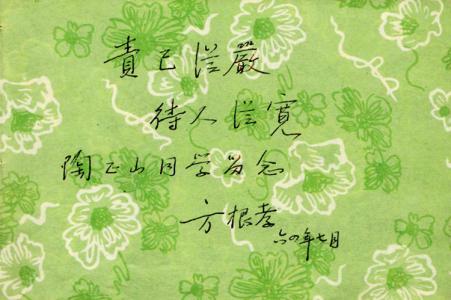 責己從嚴
待人從寬
陶正山同学留念
方根孝
六〇年七月